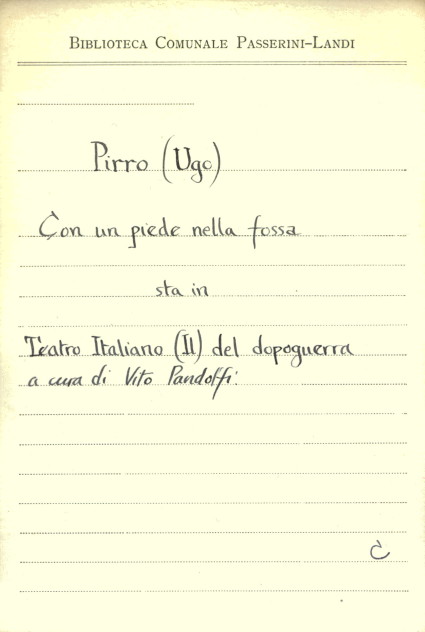 BIBLIOTECA COMUNALE PASSERINI-LANDI
Pirro (Ugo)
Con un piede nella fossa
sta in
Teatro Italiano (Il) del dopoguerra
a cura di Vito Pandolfi.
C